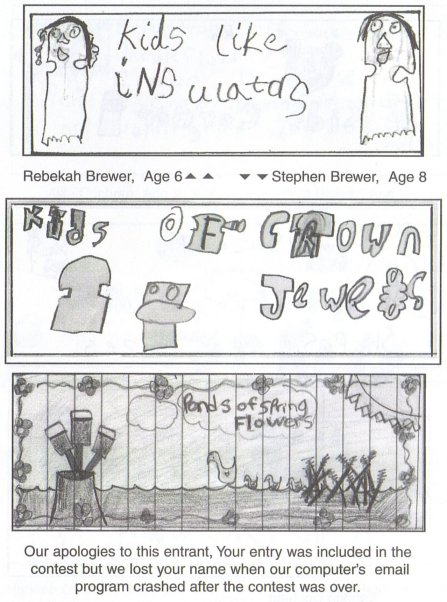 Kids Like
iNS ulators
Rebekah Brewer, Age 6▲ ▲ ▼ ▼Stephen Brewer, Age 8
KiDs OF CROWN
JeweLs
Ponds of Spring
Flowers
Our apologies to this entrant, Your entry was included in the
contest but we lost your name when our computer's email
program crashed after the contest was over.